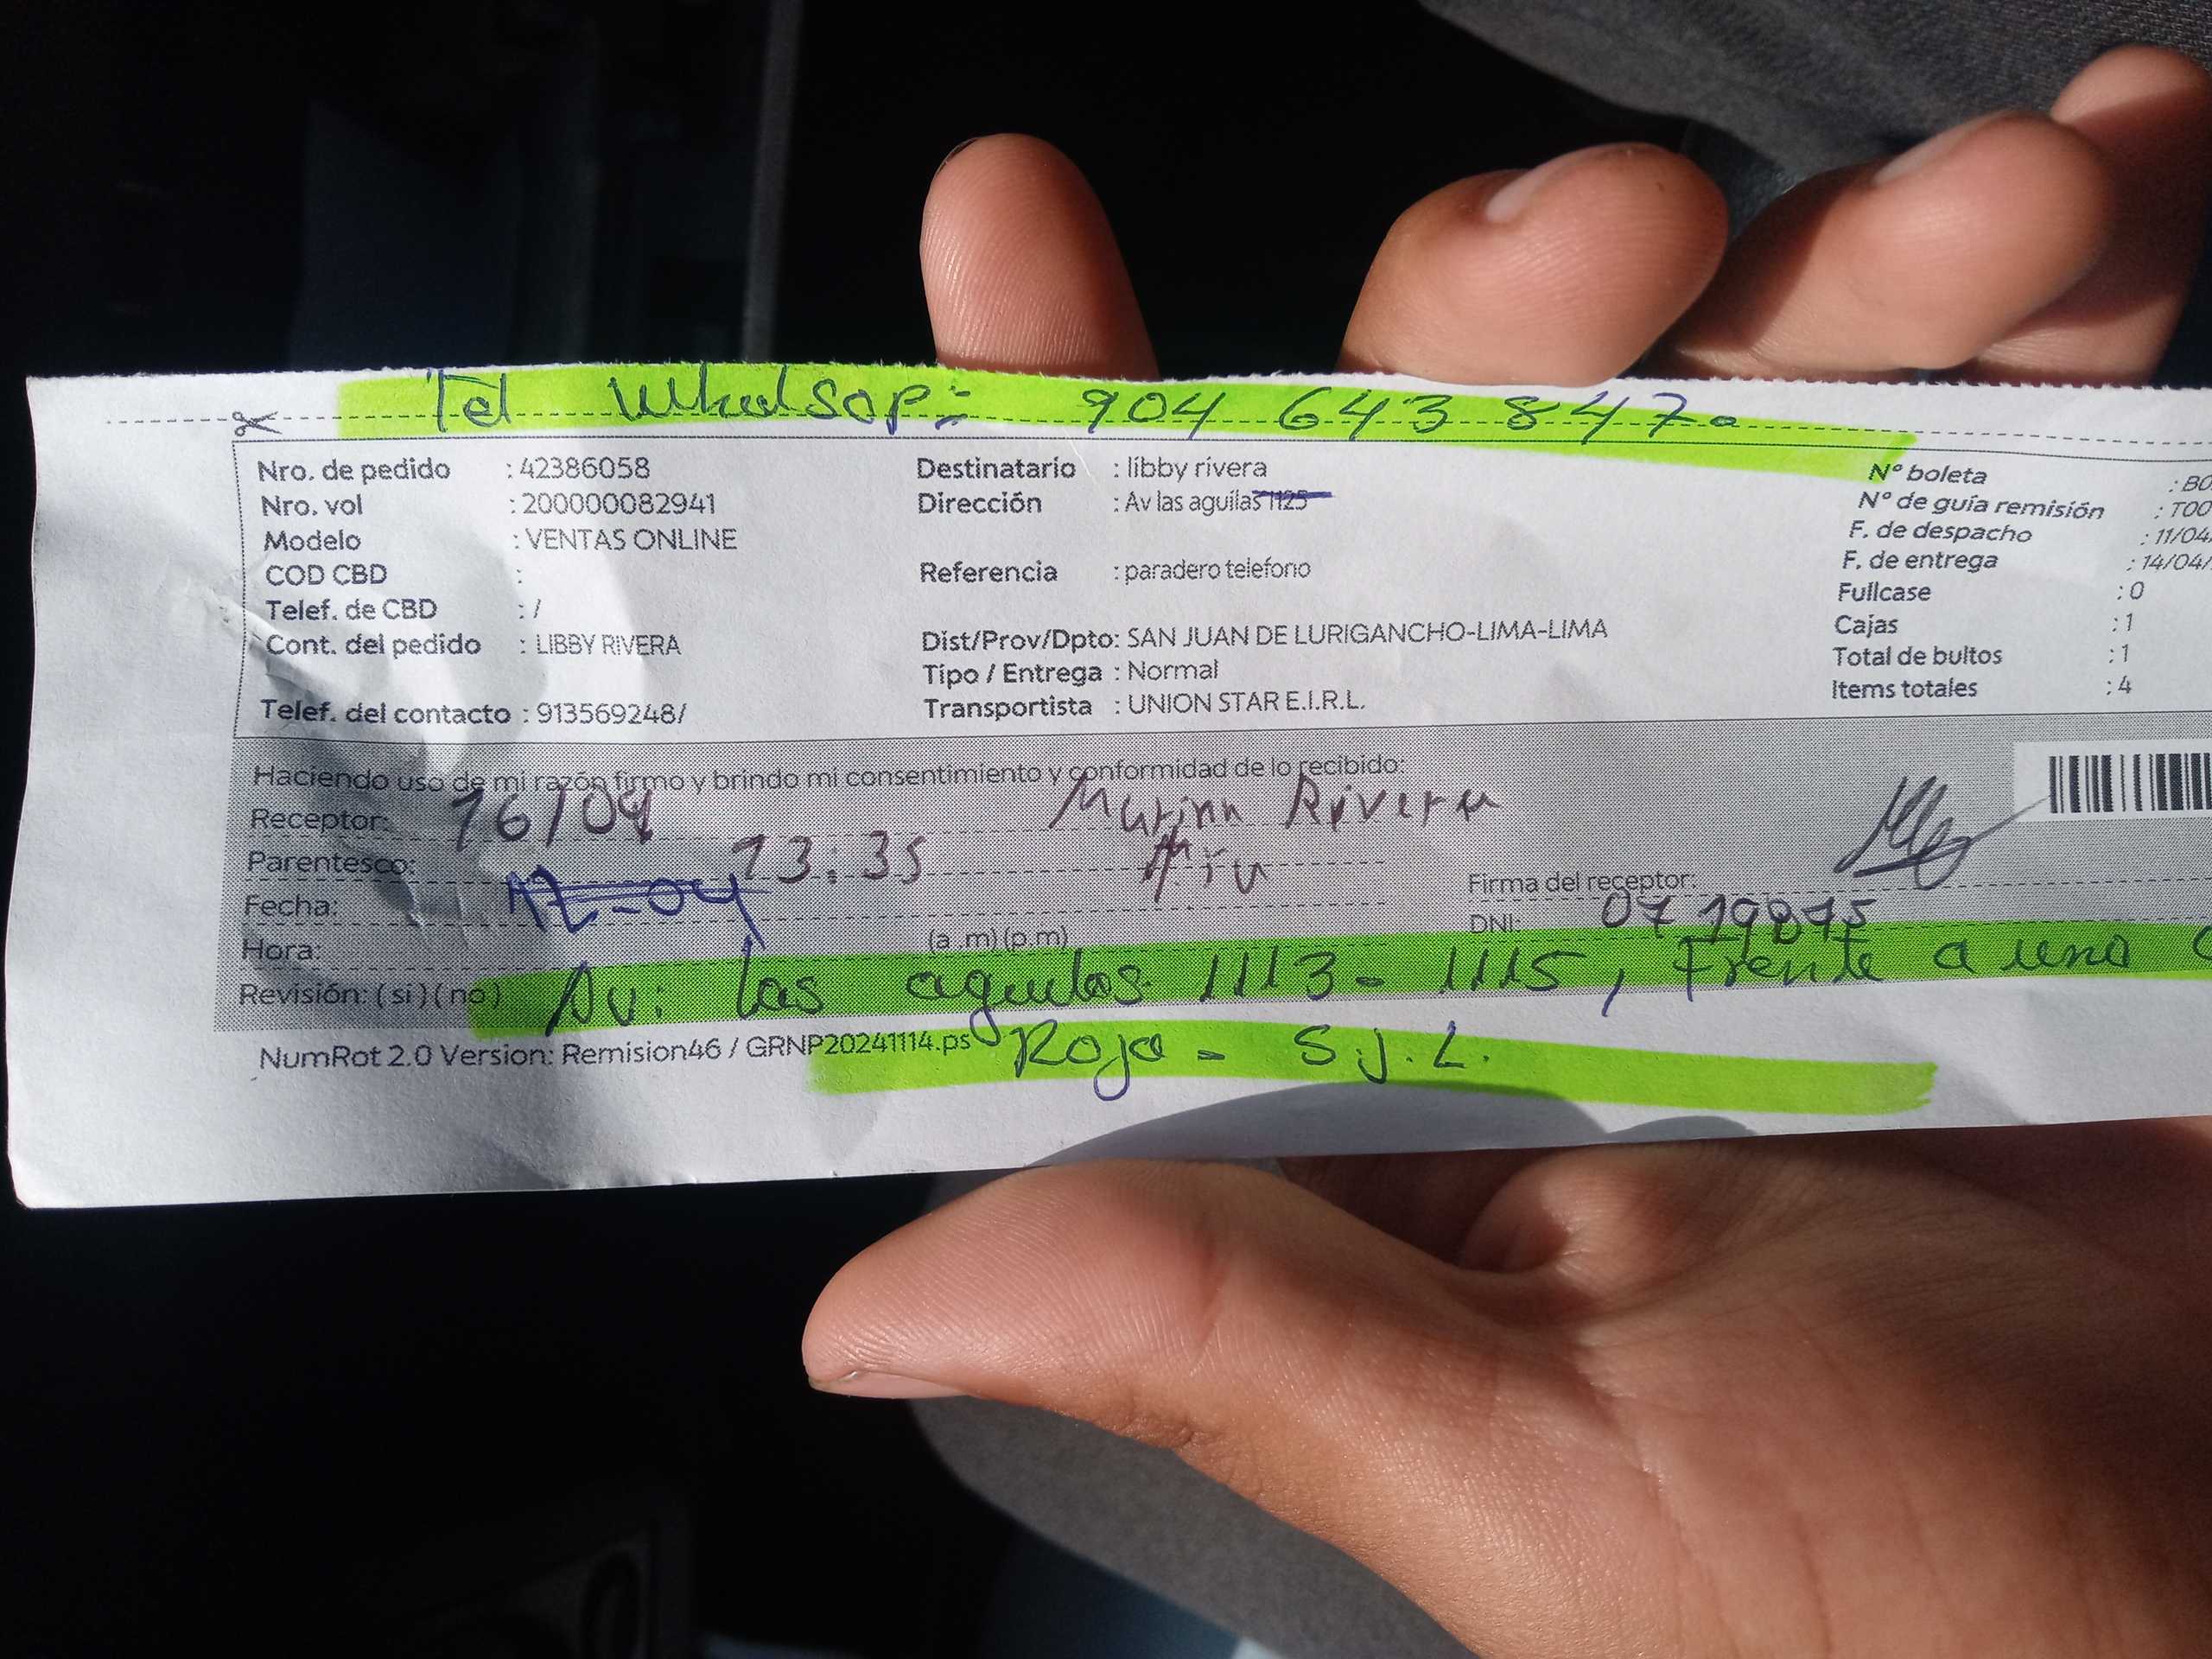 Tel Whatsop: 904 643 847.
Nro. de pedido : 42386058
Nro. vol : 200000082941
Modelo : VENTAS ONLINE
COD CBD :
Telef. de CBD : /
Cont. del pedido : LIBBY RIVERA
Telef. del contacto : 913569248/
Destinatario : libby rivera
Dirección : Av las aguilas 1125
Referencia : paradero telefono
Dist/Prov/Dpto: SAN JUAN DE LURIGANCHO-LIMA-LIMA
Tipo / Entrega : Normal
Transportista : UNION STAR E.I.R.L.
N° boleta : B0
N° de guía remisión : T00
F. de despacho : 11/04/
F. de entrega : 14/04/
Fullcase : 0
Cajas : 1
Total de bultos : 1
Items totales : 4
Haciendo uso de mi razón firmo y brindo mi consentimiento y conformidad de lo recibido:
Receptor: 16/04 Rivera
Parentesco: 13:35
Fecha: 12-04
Firma del receptor:
Hora: (a .m) (p.m)
DNI: 07 19875
Revisión: (si) (no) Av: las aguilas 1113 - 1115, Frente a uno
Roja - S.J.L.
NumRot 2.0 Version: Remision46 / GRNP20241114.ps